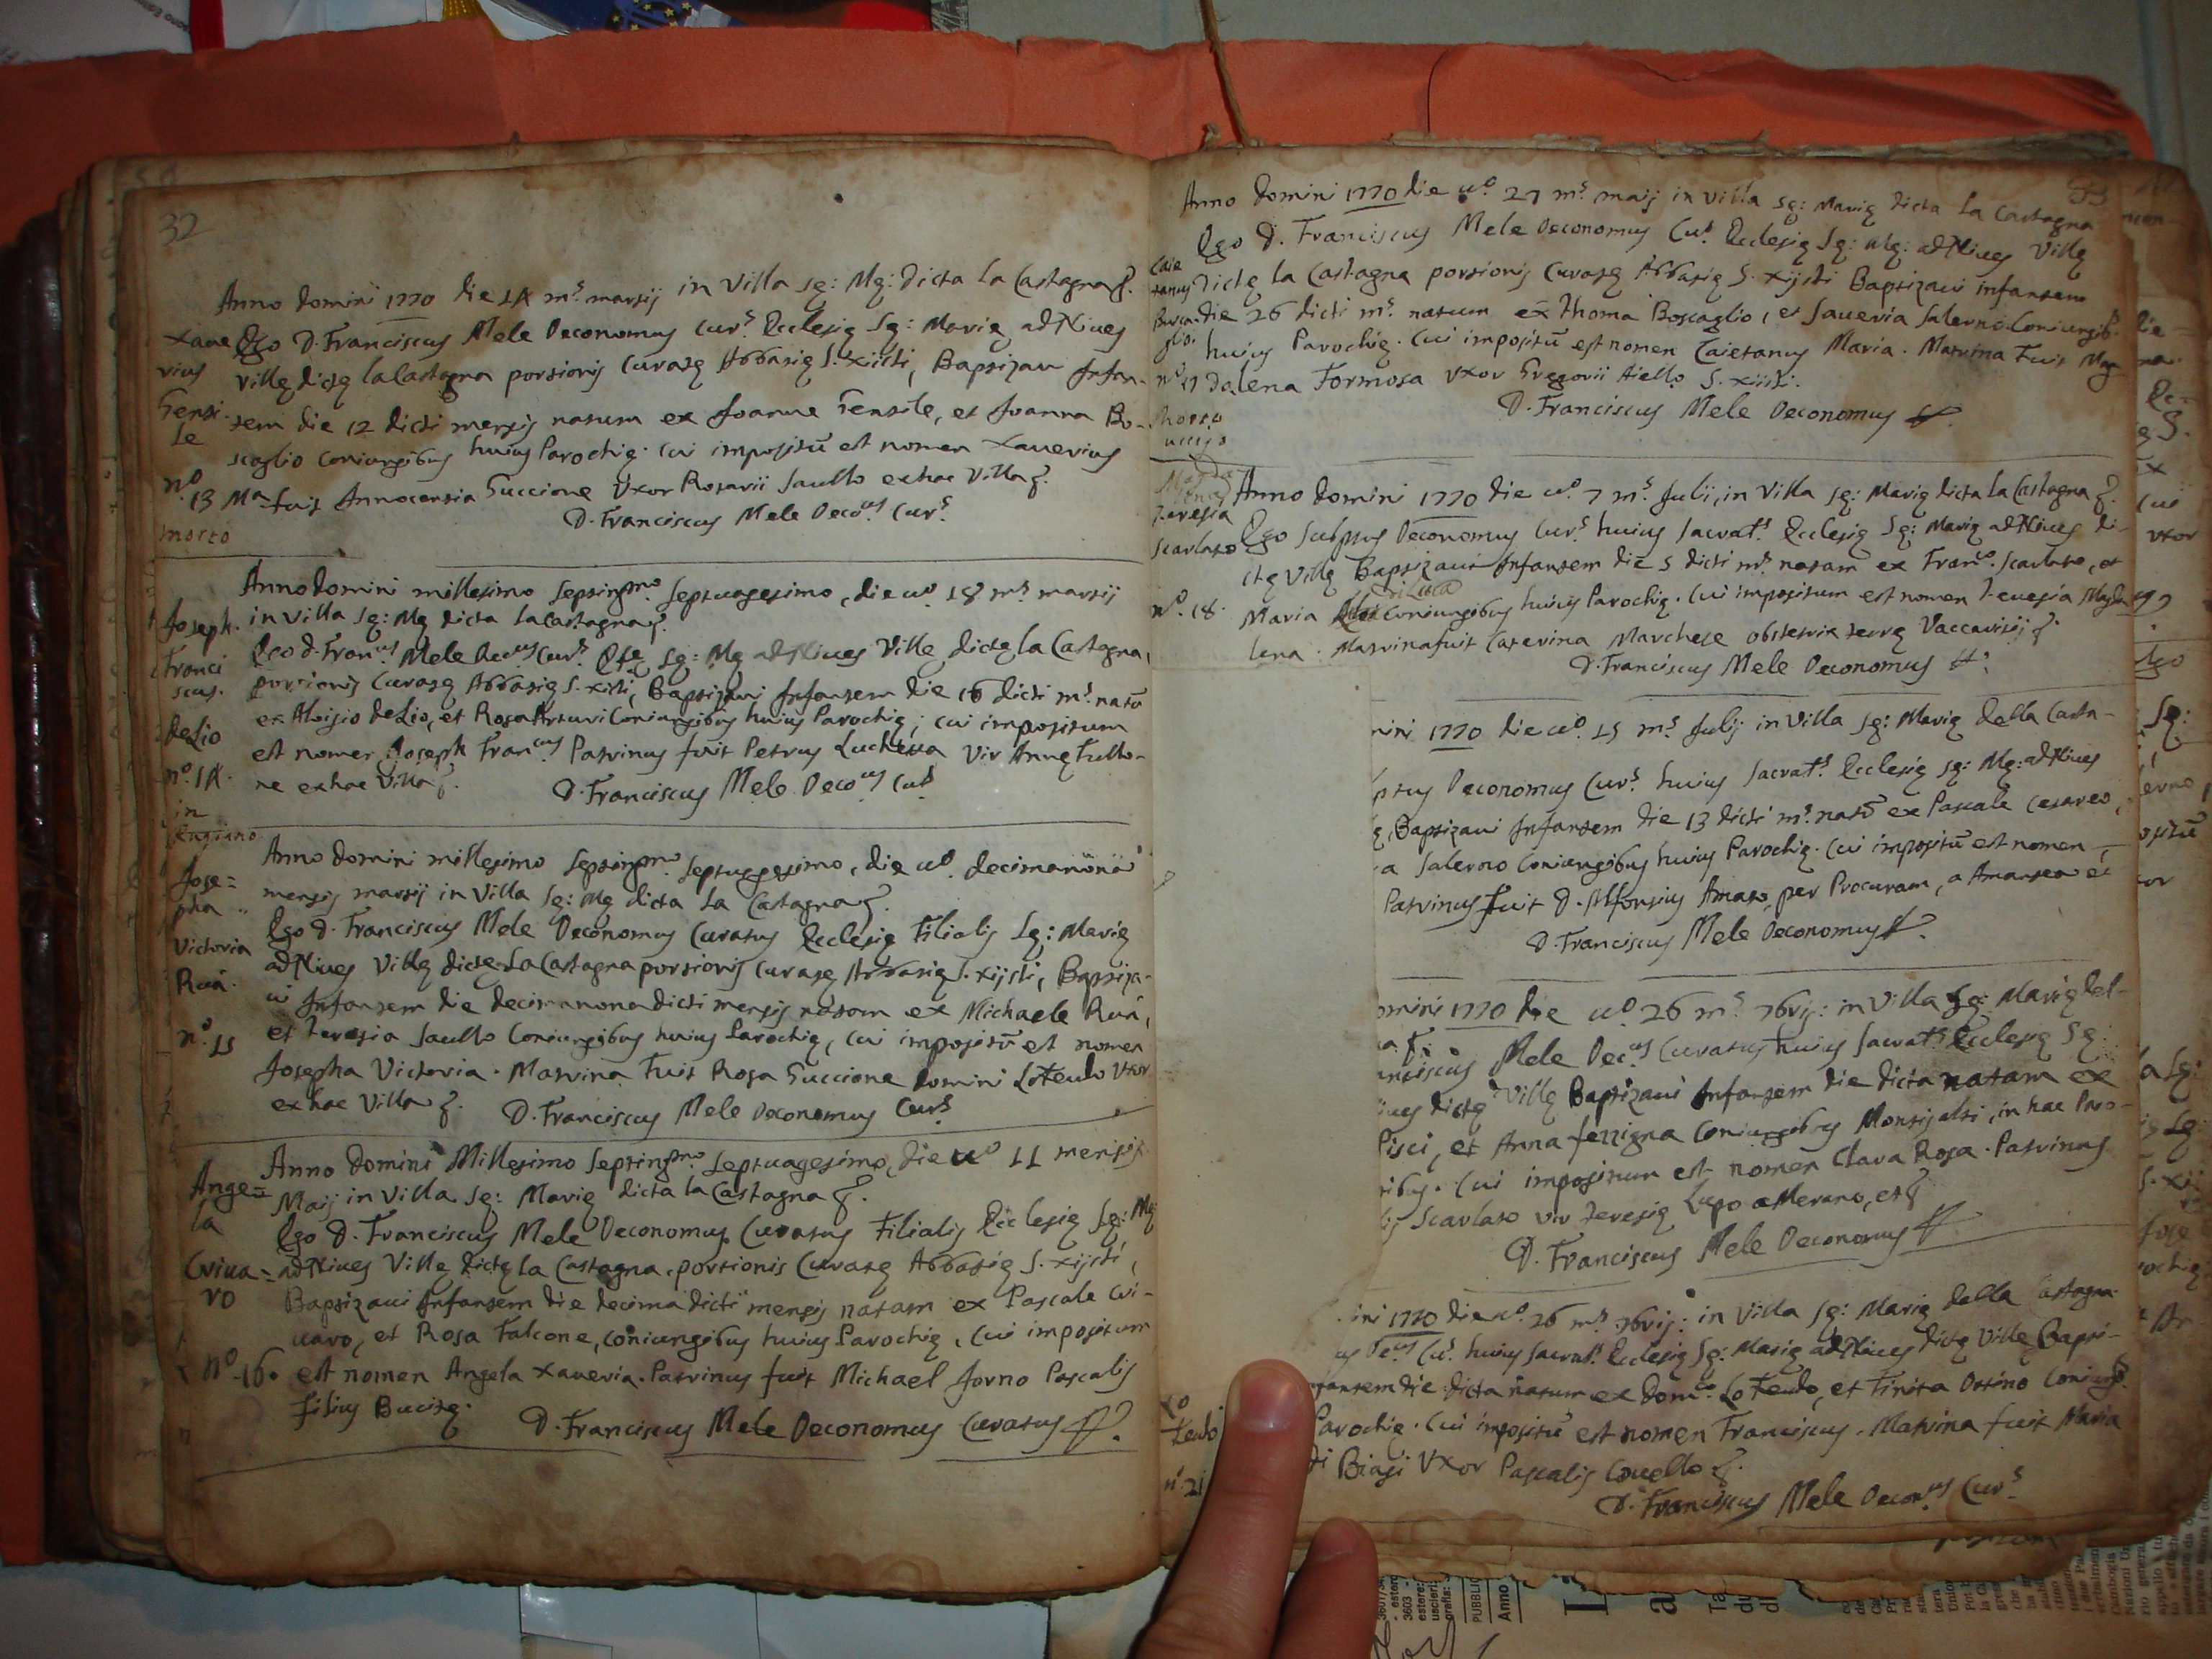 32
Anno Domini 1770 die 14 m.s martij in Villa Sę: Mę: dicta la Castagna
Xave
rius
Gensi-
le
n.o 13
morto
Ego D. Franciscus Mele Oeconomus Cur.s Ecclesię Sę: Marię ad Nives
Villę dictę la Castagna portionis Curatę Abbatię S. Xisti, Baptizavi Infan-
tem die 12 dicti mensis natum ex Joanne Gensile, et Joanna Bo-
scaglio Coniungibus huius Parochię. Cui impositū est nomen Xaverius
M.a fuit Innocensia Guccione Uxor Rosarii Saullo ex hac Villa
D. Franciscus Mele Oeco.us Cur.s
Joseph.
Franci
scus.
de Lio
n.o 14.
in
Anno Domini millesimo septing.mo septuagesimo, die u.o 18 m.s martij
in Villa Sę: Mę dicta la Castagna
Ego D. Fran.us Mele Oec.us Cur.s Sę: Mę ad Nives Villę dictę la Castagna,
portionis Curatę Abbatię S. Xisti, Baptizavi Infantem die 16 dicti m.s natū
ex Aloisio de Lio, et Rosa Arturi Coniungibus huius Parochię; cui impositum
est nomen Joseph Fran.cus Patrinus fuit Petrus Luchetta Vir Annę Fullo-
ne ex hac Villa
D. Franciscus Mele Oeco.us Cu.s
Jose=
pha
Victoria
Ruà.
n.o 15
Anno Domini millesimo septing.mo septuagesimo, die u.o decimanona
mensis martij in Villa Sę: Mę dicta la Castagna
Ego D. Franciscus Mele Oeconomus Curatus Ecclesię Filialis Sę: Marię
ad Nives Villę dictę la Castagna portionis Curatę Abbatię S. Xijsti, Baptiza-
vi Infantem die decimanona dicti mensis natam ex Michaele Ruà,
et Teresia Saullo Coniungibus huius Parochię, cui impositū est nomen
Josepha Victoria. Matrina Fuit Rosa Guccione Domini Lo Feudo Uxor
ex hac Villa
D. Franciscus Mele Oeconomus Cur.s
Ange=
la
Criva=
ro
N.o 16.
Anno Domini Millesimo septing.mo septuagesimo, die u.o 11 mensis
Maij in Villa Sę: Marię dicta la Castagna
Ego D. Franciscus Mele Oeconomus Curatus Filialis Ecclesię Sę: Mę
ad Nives Villę dictę la Castagna, portionis Curatę Abbatię S. Xijsti,
Baptizavi Infantem die decima dicti mensis natam ex Pascale Cri-
varo, et Rosa Falcone, Coniungibus huius Parochię, Cui impositum
est nomen Angela Xaveria. Patrinus fuit Michael Jorno Pascalis
filius
D. Franciscus Mele Oeconomus Curatus
33
Anno Domini 1770 die u.o 27 m.s maij in Villa Sę: Marię dicta la Castagna
Caie
tanus
n.o 17
Morto
Ego D. Franciscus Mele Oeconomus Cu.s Ecclesię Sę: Mę: ad Nives Villę
dictę la Castagna portionis Curatę Abbatię S. Xijsti Baptizavi infantem
die 26 dicti m.s natum ex Thoma Boscaglio, et Saveria Salerno Coniungib.
huius Parochię. Cui impositū est nomen Caietanus Maria. Matrina Fuit Mag
dalena Formosa Uxor Gregorii Aiello S. Xiisti.
D. Franciscus Mele Oeconomus
Teresia
Scarlato
n.o 18.
Anno Domini 1770 die u.o 7 m.s Julii, in Villa Sę: Marię dicta la Castagna
Ego Oeconomus Cur.s huius Sacrat.s Ecclesię Sę: Marię ad Nives di-
ctę Villę Baptizavi Infantem die 5 dicti m.s natam ex Fran.co Scarlato, et
Maria Coniungibus huius Parochię. Cui impositum est nomen Teresia Magda
lena. Matrina fuit Caterina Marchese obstetrix terrę Vaccaritij
D. Franciscus Mele Oeconomus
ini 1770 die u.o 15 m.s Julij in Villa Sę: Marię della Casta-
ptus Oeconomus Cur.s huius Sacrat.s Ecclesię Sę: Mę: ad Nives
ę, Baptizavi Infantem die 13 dicti m.s natū ex Pascale Cesareo,
a Salerno Coniungibus huius Parochię. Cui impositū est nomen
Patrinus fuit D. Alfonsius Amato, per Procuram, a Amantea
D. Franciscus Mele Oeconomus
omini 1770 die u.o 26 m.s 7bris: in Villa Sę: Marię del-
nciscus Mele Oec.us Curatus huius Sacrat.s Ecclesię Sę:
ives dictę Villę Baptizavi Infantem die dicta natam ex
Pisci, et Anna ferrigna Coniungibus Montisalti, in hac Paro-
ibus. Cui impositum est nomen Clara Rosa. Patrinus
is Scarlato vir Teresię Lupo a Merano, et
D. Franciscus Mele Oeconomus
ini 1770 die u.o 26 m.s 7bris: in Villa Sę: Marię della Castagna
us Oec.us Cu.s huius Sacrat.s Ecclesię Sę: Marię ad Nives dictę Villę Bapti-
nfantem die dicta natum ex Dom.co Lo Feudo, et Finita Ossino Coniung.
Parochię. Cui impositū est nomen Franciscus. Matrina fuit Maria
di Biasi Uxor Pascalis Covello
D. Franciscus Mele Oecon.us Cur.s
Lo
Feudo
n.o 21